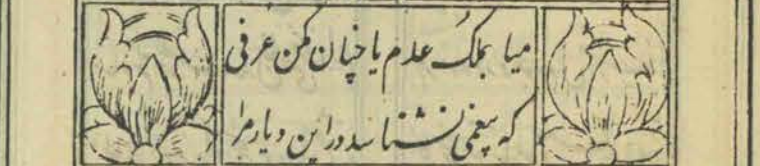 میا بملک عدم یا چنان کن عرفی
که بیغمی نشناسد دراین دیار مرا